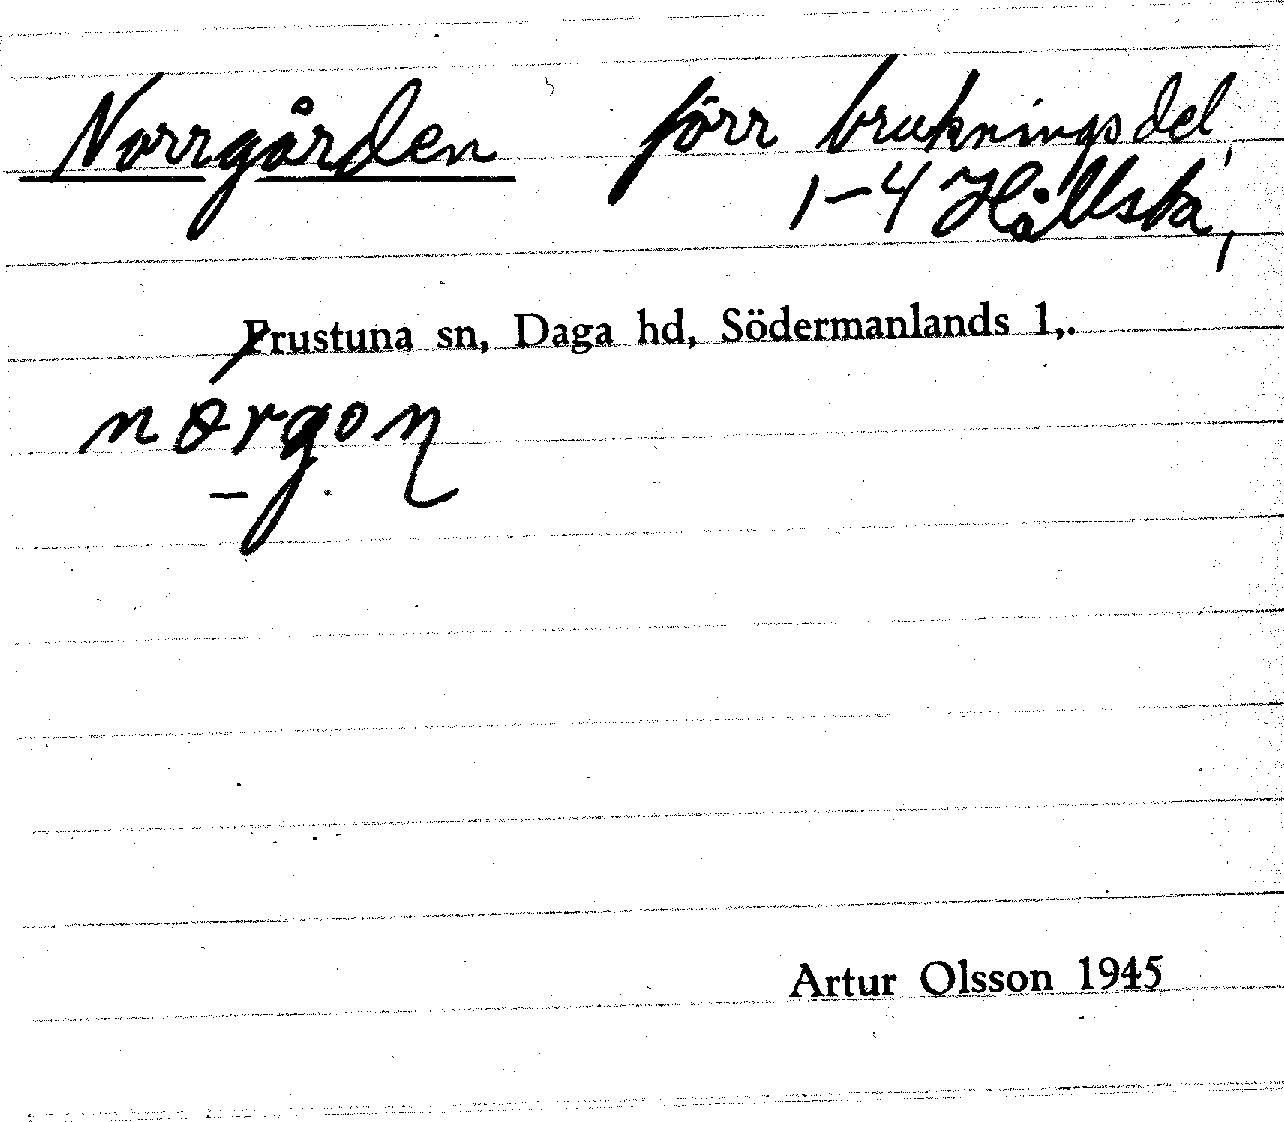 Norrgården förr brukningsdel,
1-4 Hållsta,
Frustuna sn, Daga hd, Södermanlands l,.
nørgon
Artur Olsson 1945